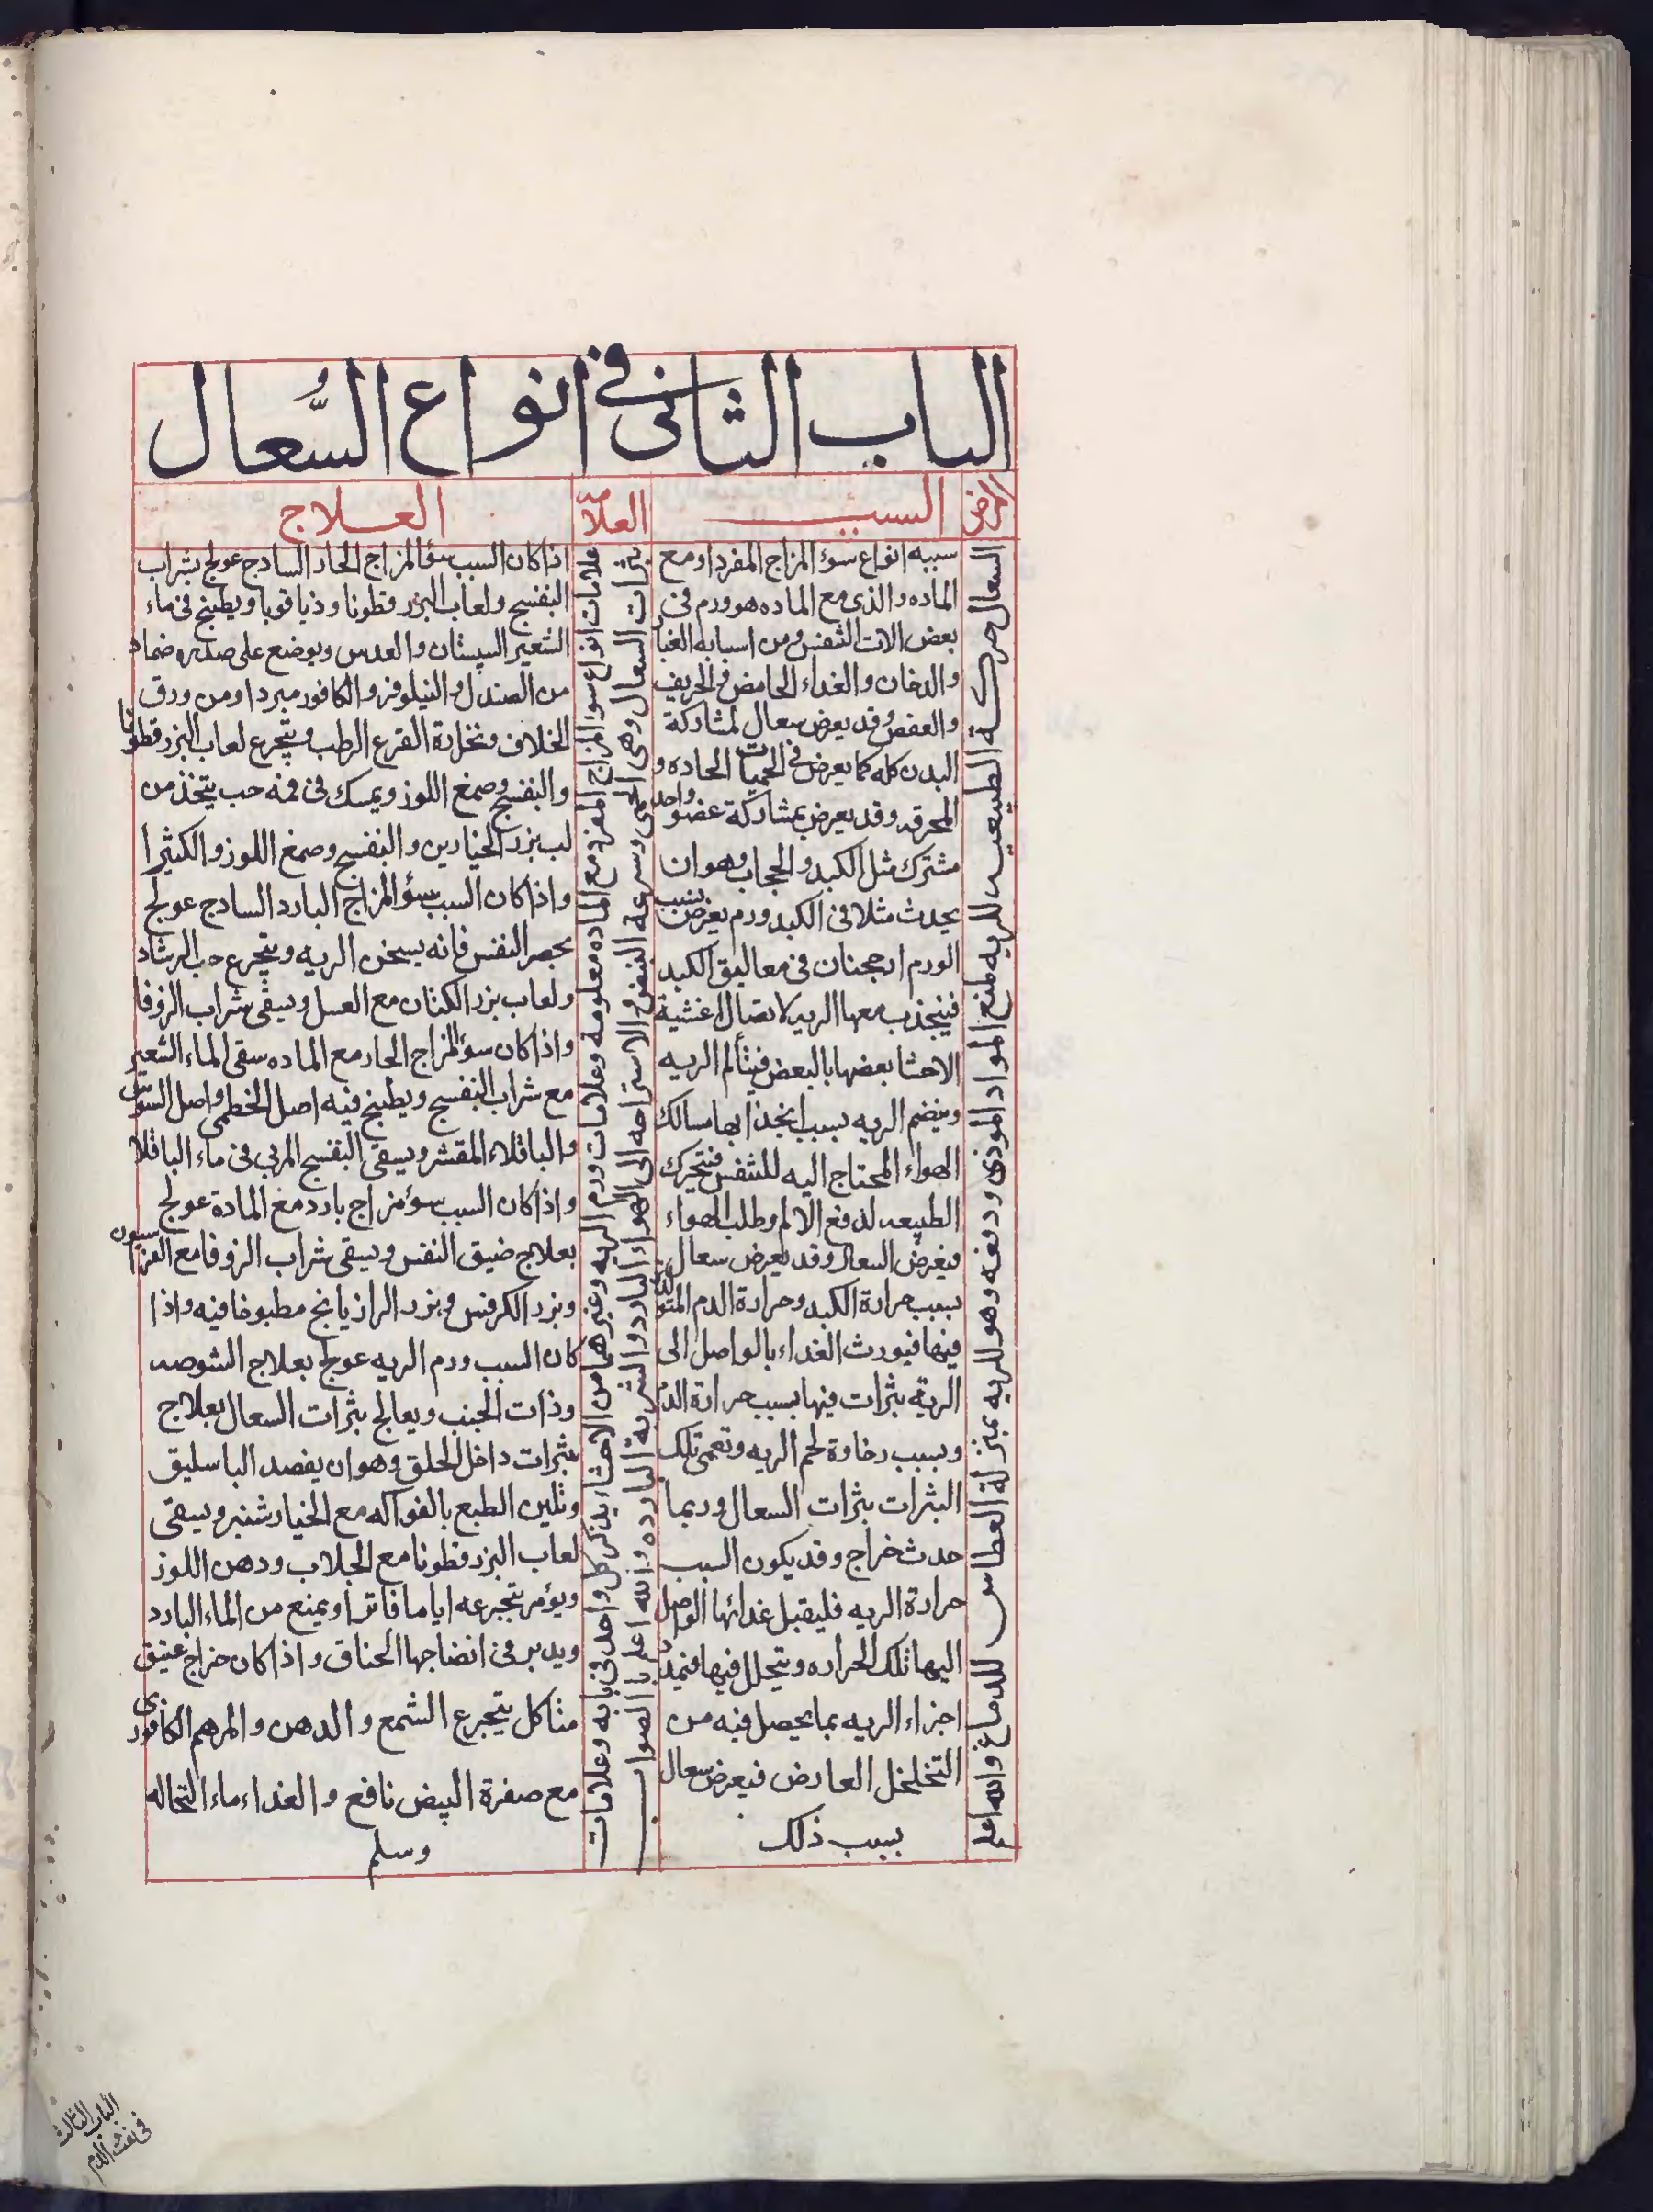 الباب الثانى فى انواع السُّعال
المرض
السبب
العلامة
العلاج
السعال حركة الطبيعيه للريه لمنع المواد الموذى ودفعه وهو للريه بمنزلة العطاس للدماغ والله اعلم
سببه انواع سوء المزاج المفرد او مع
الماده والذى مع الماده هو ورم فى
بعض الات التنفس ومن اسبابه الغبار
والدخان والغداء الحامض والحريف
والعفص وقد يعرض سعال لمشاركة
البدن كله كما يعرض فى الحميات الحاده و
المحرقه وقد يعرض بمشاركة عضو واحد
مشترك مثل الكبد والحجاب وهو ان
يحدث مثلا فى الكبد ورم يعرض بسبب
الورم ارجحنان فى معاليق الكبد
فينجذب معها الريه لاتصال اغشية
الاحشا بعضها بالبعض فيتألم الريه
وينضم الريه بسبب انجذابها مسالك
الهواء المحتاج اليه للتنفس فتحرك
الطبيعه لدفع الالم وطلب الهواء
فيعرض السعال وقد يعرض سعال
بسبب حرارة الكبد وحرارة الدم المتولد
فيها فيورث الغداء بالواصل الى
الرية بثرات فيها بسبب حرارة الدم
وبسبب رخاوة لحم الريه وتعمى تلك
البثرات بثرات السعال وربما
حدث خراج وقد يكون السبب
حرارة الريه فليقبل غدائها الواصل
اليها تلك الحراره ويتحلل فيها فتمدد
اجزاء الريه بما يحصل فيه من
التخلخل العارض فيعرض سعال
بسبب ذلك
علامات انواع سوء المزاج المفرد مع الماده معلومه وعلامات ورم الريه وغيرهما من الاحشاء يذكر كل واحد فى بابه وعلامات
بثرات السعال وهى الحمى وسرعة النبض والاستراحه الى الهواء البارد والشربة البارده والله اعلم بالصواب
اذا كان السبب سؤ المزاج الحار السادج عولج بشراب
البنفسج ولعاب البزر قطونا وذياقوبا ويطبخ فى ماء
الشعير السپستان والعدس ويوضع على صدره ضماد
من الصندل والنيلوفر والكافور مبردا ومن ورق
الخلاف ونخارة القرع الرطب ويتجرع لعاب البزر قطونا
والبنفسج وصمغ اللوز ويمسك فى فمه حب يتخذ من
لب بزر الخيارين والبنفسج وصمغ اللوز والكثيرا
واذا كان السبب سؤ المزاج البارد السادج عولج
بحصر النفس فانه يسخن الريه ويتجرع حب الرشاد
ولعاب بزر الكتان مع العسل ويسقى شراب الزوفا
واذا كان سؤ المزاج الحار مع الماده سقى الماء الشعير
مع شراب البنفسج ويطبخ فيه اصل الخطمى واصل السوس
والباقلاء المقشر ويسقى البنفسج المربى فى ماء الباقلا
واذا كان السبب سؤ مزاج بارد مع المادة عولج
بعلاج ضيق النفس ويسقى شراب الزوفا مع الفراسيون
وبزر الكرفس وبزر الرازيانج مطبوخا فيه واذا
كان السبب ورم الريه عولج بعلاج الشوصه
وذات الجنب ويعالج بثرات السعال بعلاج
بثرات داخل الحلق وهو ان يفصد الباسليق
وتلين الطبع بالفواكه مع الخيارشنبر ويسقى
لعاب البزر قطونا مع الجلاب ودهن اللوز
ويؤمر بتجرعه اياما فاترا ويمنع من الماء البارد
ويدبر فى انضاجها الخناق واذا كان خراج عتيق
متاكل يتجرع الشمع والدهن والمرهم الكافورى
مع صفرة البيض نافع والغداء ماء النخاله
وسلم
الباب الثالث
فى نفث الدم